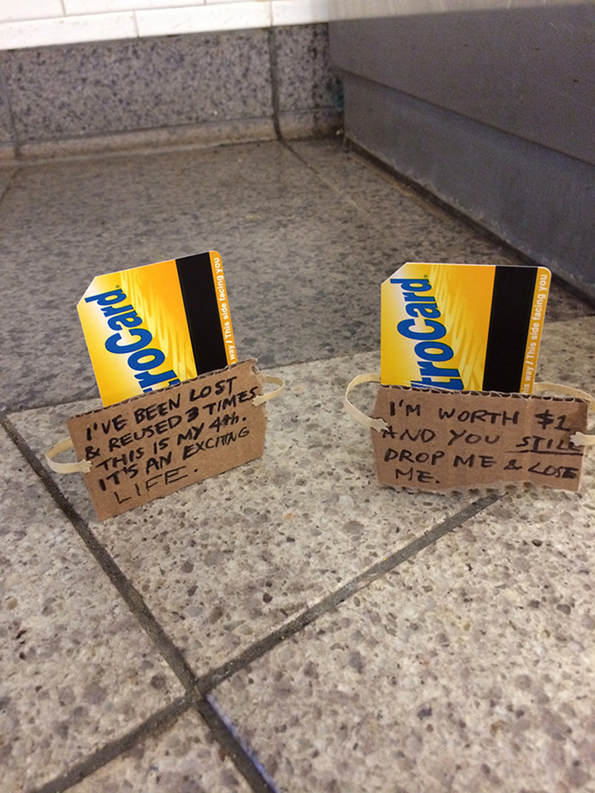 troCard
way / This side facing you
I'VE BEEN LOST
& REUSED 3 TIMES
THIS IS MY 4th.
IT'S AN EXCITING
LIFE.
troCard
way / This side facing you
I'M WORTH $1
AND YOU STILL
DROP ME & LOSE
ME.